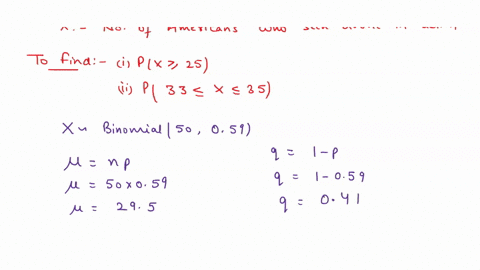 X:- No. of Americans who
To find:- (i) P(X ≥ 25)
(ii) P( 33 ≤ X ≤ 35)
X ~ Binomial (50, 0.59)
μ = np
q = 1-p
μ = 50×0.59
q = 1-0.59
μ = 29.5
q = 0.41